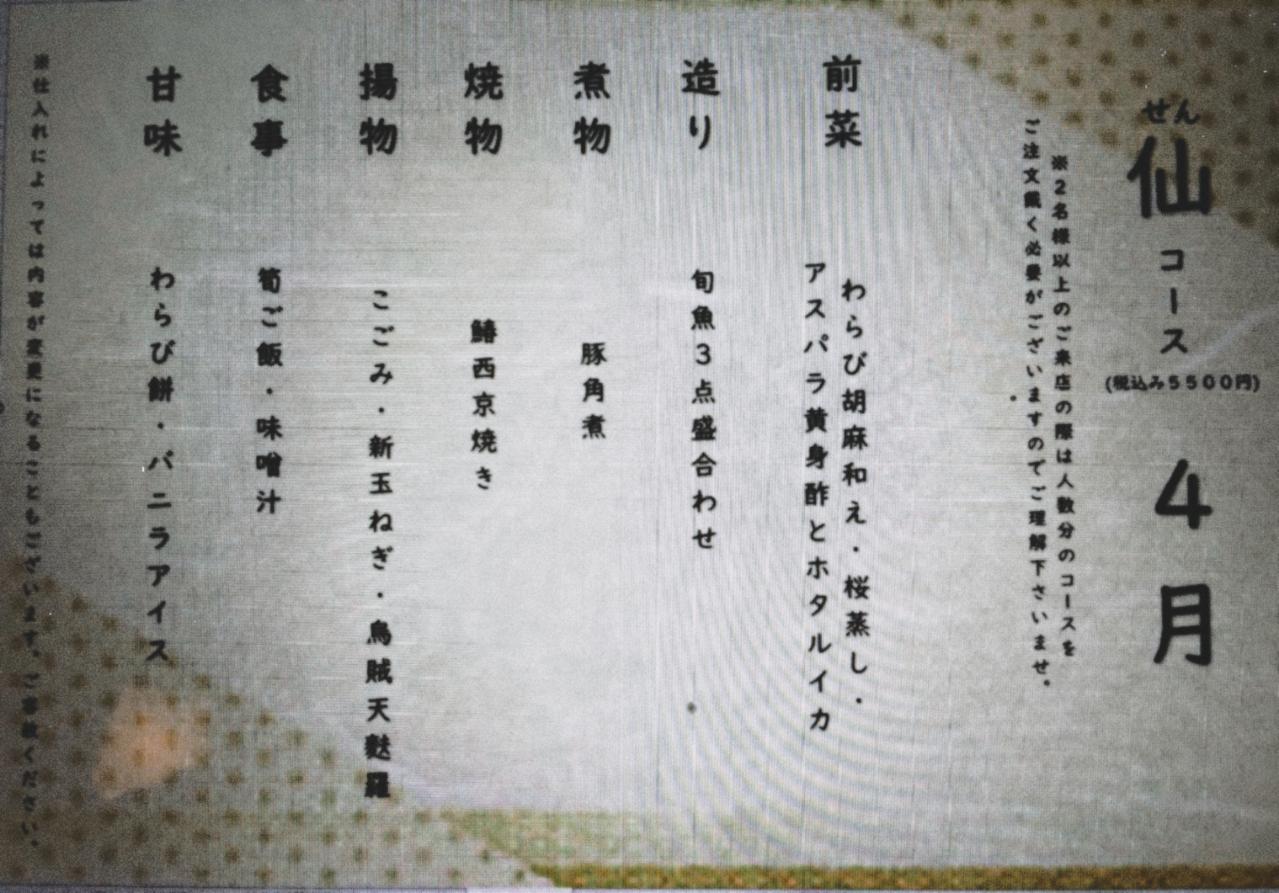 せん
仙コース
(税込み5500円)
4月
※2名様以上のご来店の際は人数分のコースを
ご注文戴く必要がございますのでご理解下さいませ。
前菜
わらび胡麻和え・桜蒸し・
アスパラ黄身酢とホタルイカ
造り
旬魚3点盛合わせ
煮物
豚角煮
焼物
鰆西京焼き
揚物
こごみ・新玉ねぎ・烏賊天麩羅
食事
筍ご飯・味噌汁
甘味
わらび餅・バニラアイス
※仕入れによっては内容が変更になることもございます。ご容赦ください。